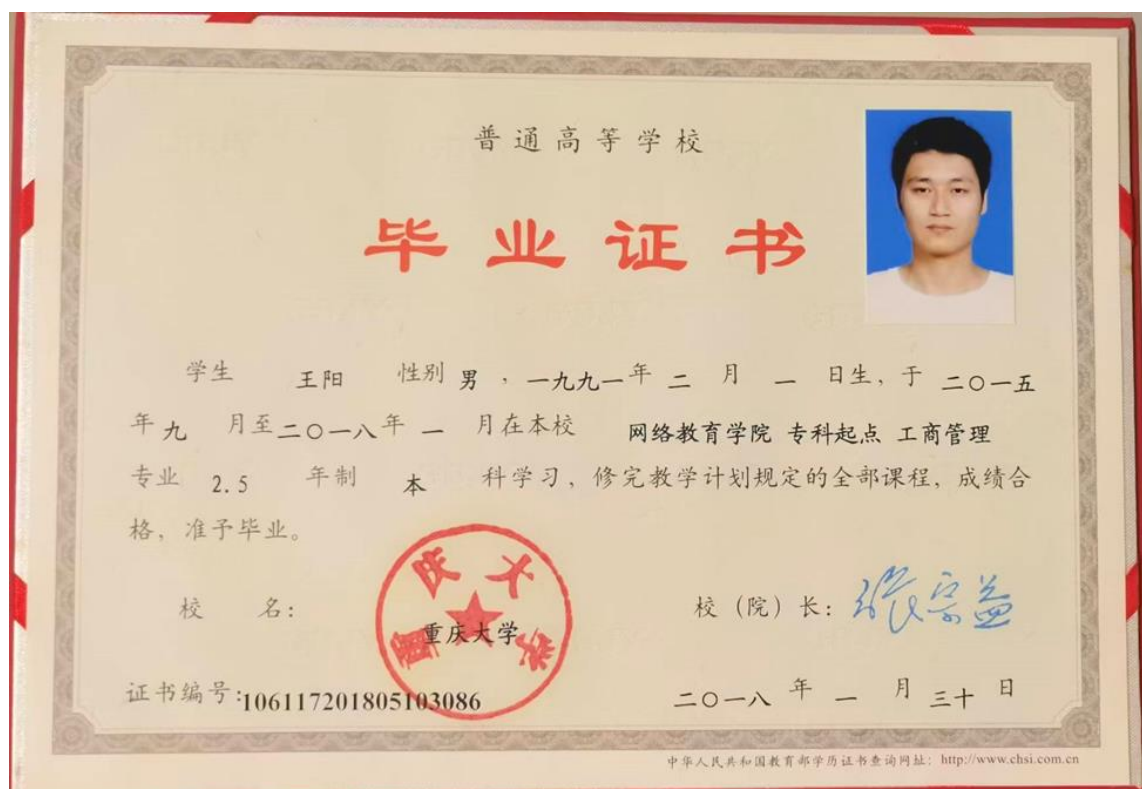 普通高等学校
毕业证书
学生 王阳 性别 男 ，一九九一年 二 月 一 日生，于 二○一五
年 九 月至 二○一八 年 一 月在本校 网络教育学院 专科起点 工商管理
专业 2.5 年制 本 科学习，修完教学计划规定的全部课程，成绩合
格，准予毕业。
校 名：重庆大学
重庆大学
校（院）长：张宗益
证书编号：106117201805103086
二○一八 年 一 月 三十 日
中华人民共和国教育部学历证书查询网址：http://www.chsi.com.cn